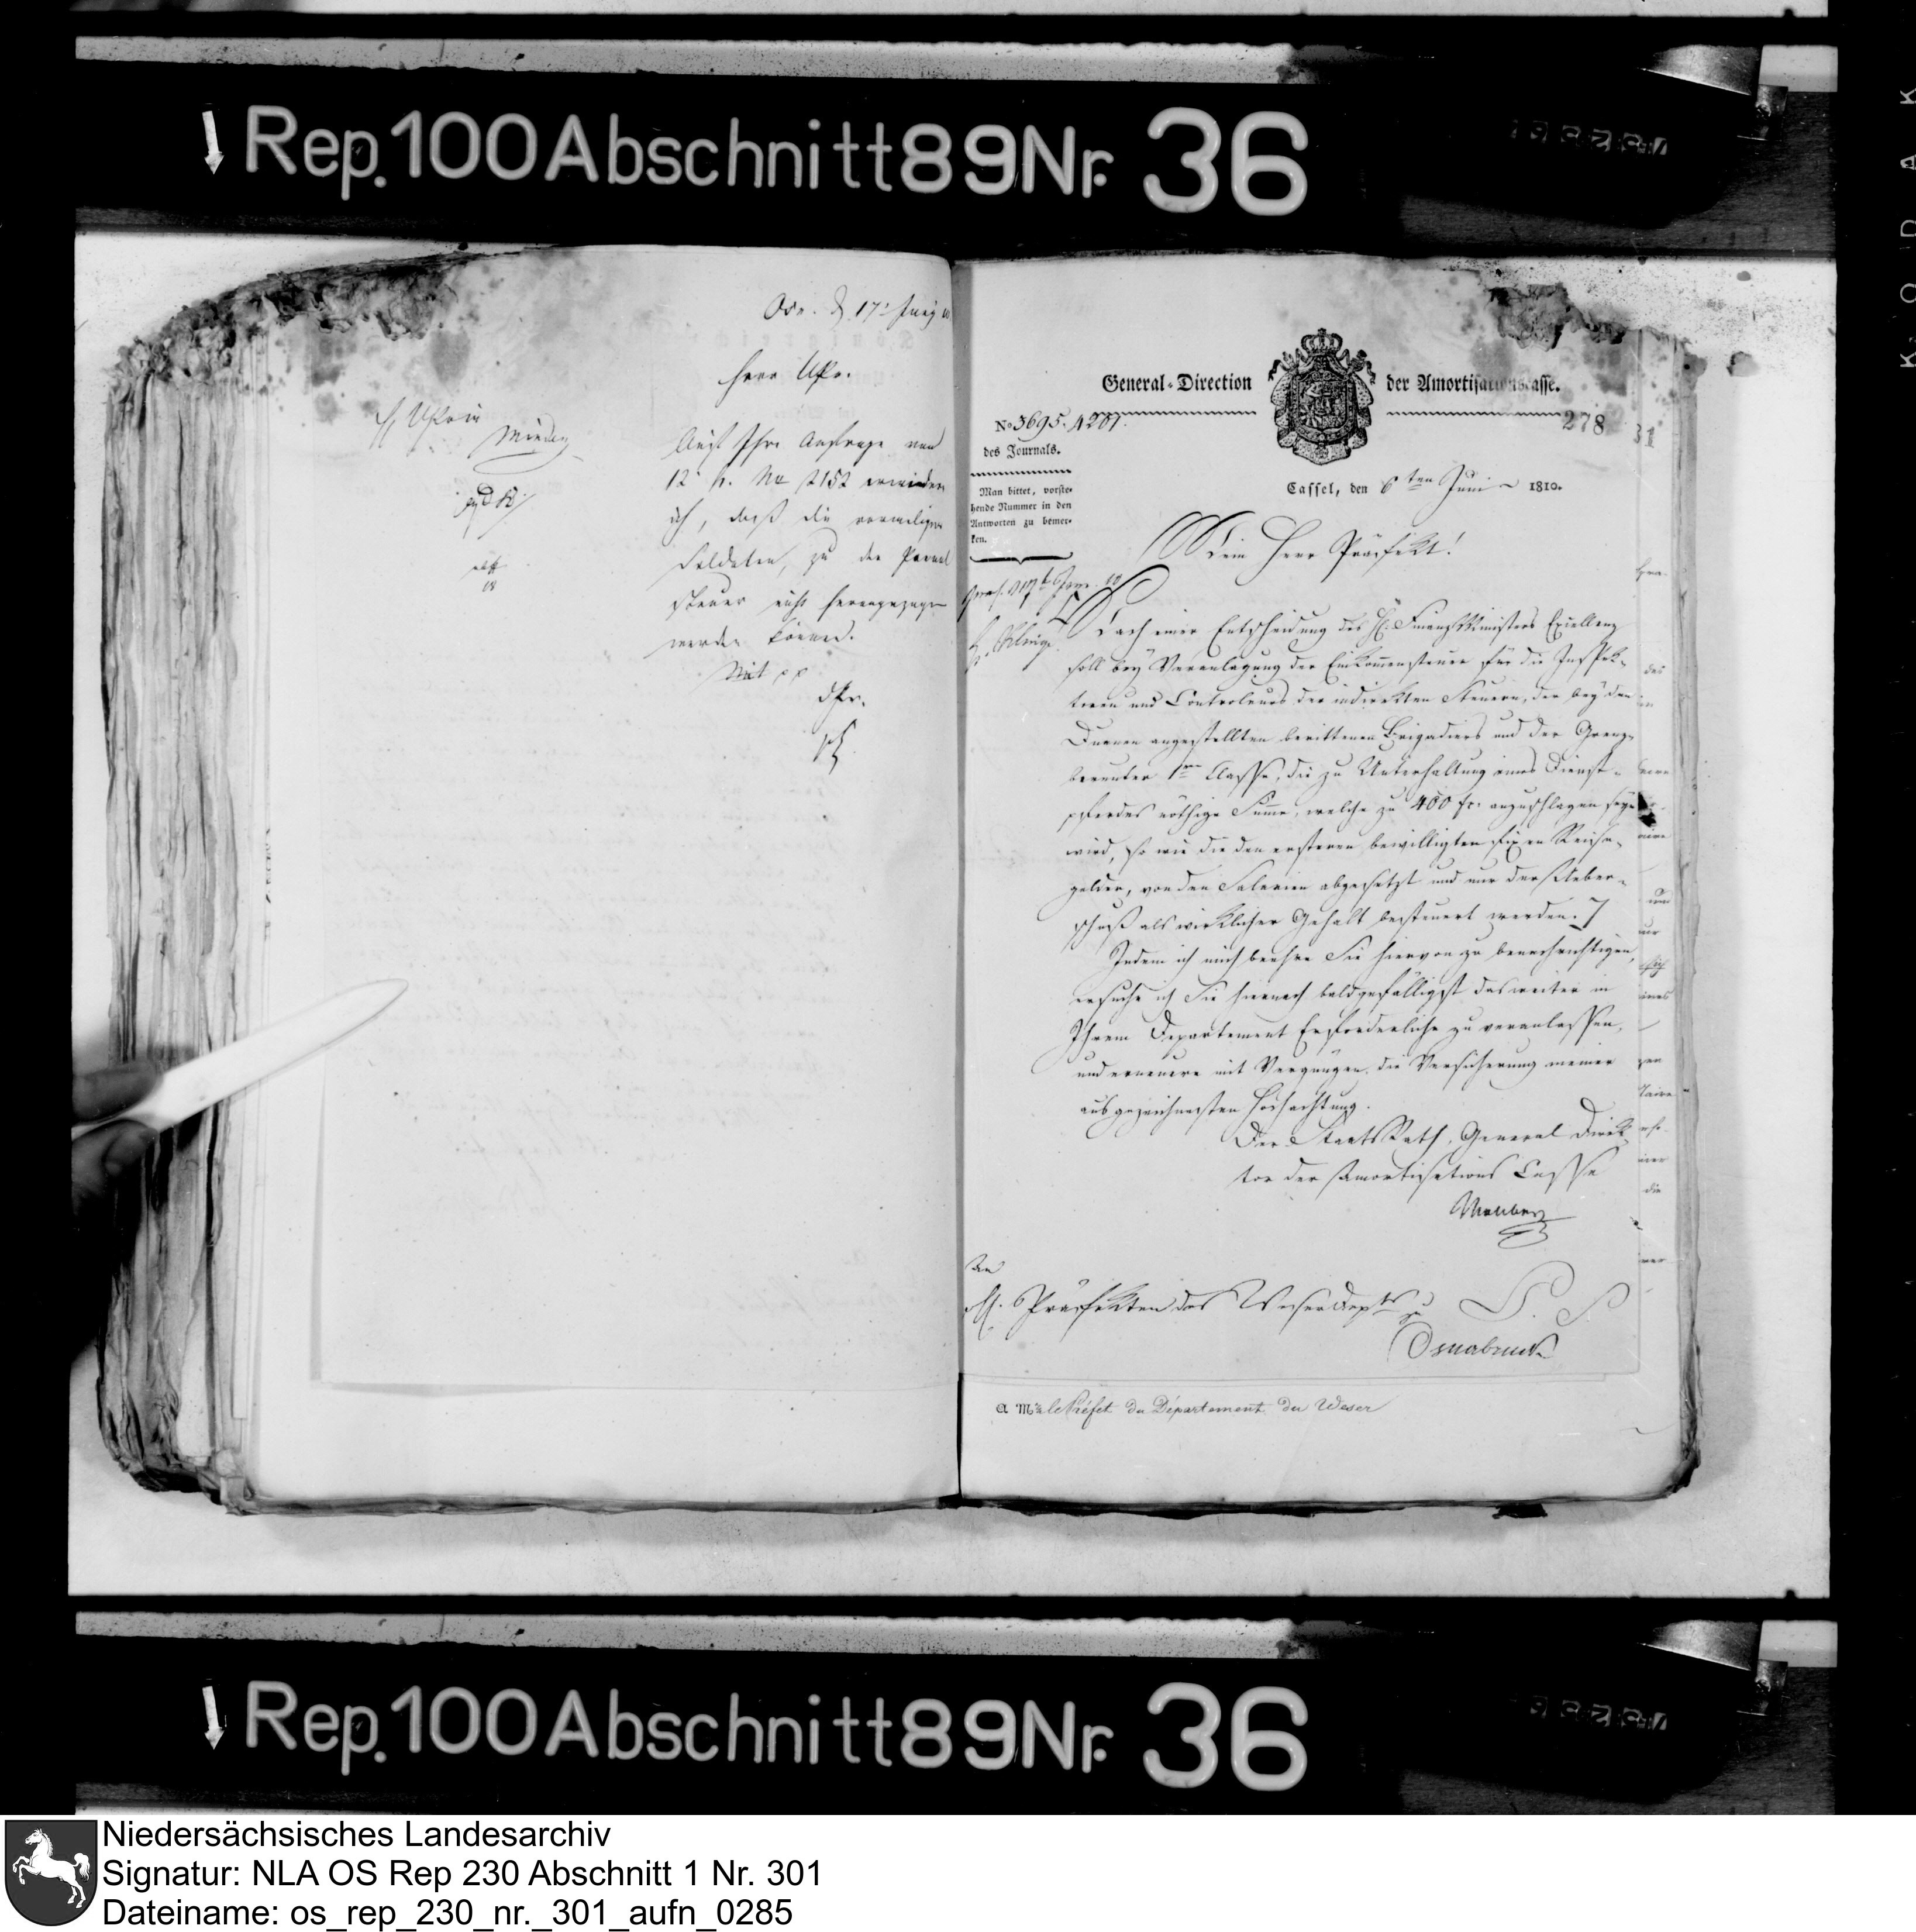 Rep. 100 Abschnitt 89 Nr. 36
KODAK
Osn. d. 17t Juny
Herr UPr.
Minden
Auf Ihre Anfrage vom
12t h. No 2152 erwiedere
ich, daß die vormaligen
Soldaten, zu der Personal
steuer nicht herangezogen
werden können.
Mit pp
dPr.
General-Direction der Amortisationscasse.
No 3695. 4201.
des Journals.
278
31
Man bittet, vorste-
hende Nummer in den
Antworten zu bemer-
ken.
Cassel, den 6ten Juni 1810.
Mein Herr Präfekt!
Nach einer Entscheidung des H. FinanzMinisters Excellenz
soll bey Veranlagung der Einkommensteuer für die Inspek-
toren und Controleurs der indirekten Steuern, der bey den
Duanen angestellten berittenen Brigadiers und der Grenz-
beamten 1ter Classe, die zu Unterhaltung eines Dienst-
pferdes nöthige Summe, welche zu 400 fr. anzuschlagen seyn
wird, so wie die den ersteren bewilligten fixen Reise-
gelder, von den Salarien abgesetzt und nur der Ueber-
schuß als wirklicher Gehalt besteuert werden.
Indem ich mich beehre Sie hiervon zu benachrichtigen,
ersuche ich Sie hiernach baldgefälligst das weiter in
Ihrem Departement Erforderliche zu veranlassen,
und erneuere mit Vergnügen die Versicherung meiner
ausgezeichnetsten Hochachtung.
Der StaatsRath, General Direk-
tor der Amortisations Casse
An
H. Präfekten des Weserdepts zu
Osnabrück
A Mr le Préfet du Département du Weser
Rep. 100 Abschnitt 89 Nr. 36
Niedersächsisches Landesarchiv
Signatur: NLA OS Rep 230 Abschnitt 1 Nr. 301
Dateiname: os_rep_230_nr._301_aufn_0285